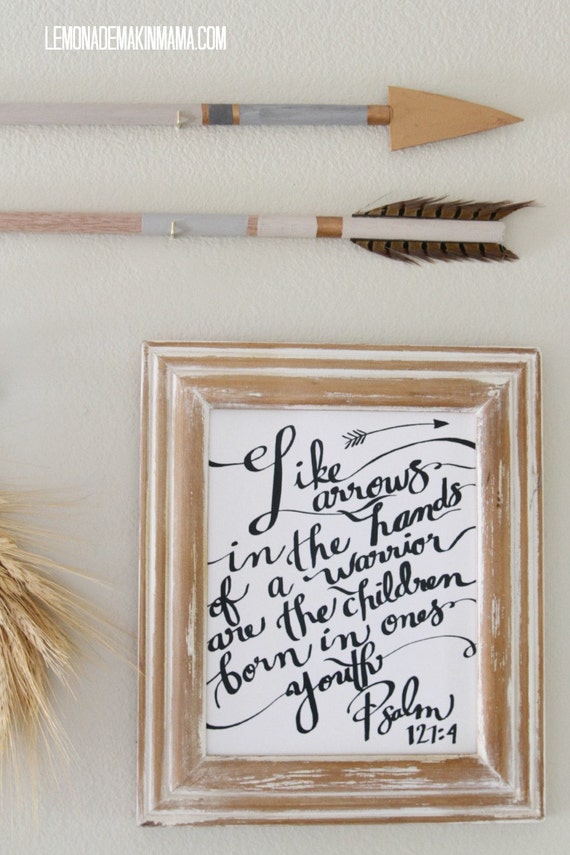 LEMONADEMAKINMAMA.COM
Like
arrows
in the hands
of a warrior
are the children
born in ones
youth
Psalm
127:4